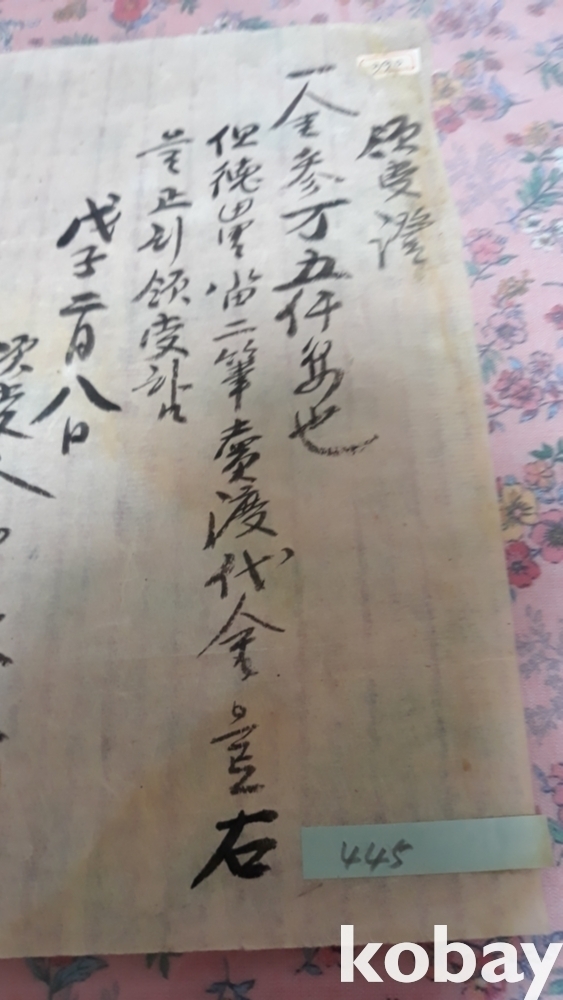 領受證
一金參万五仟圓也
但德田里畓二筆賣渡代金으로右
를正히領受함
戊子二月八日
領受人
445
kobay